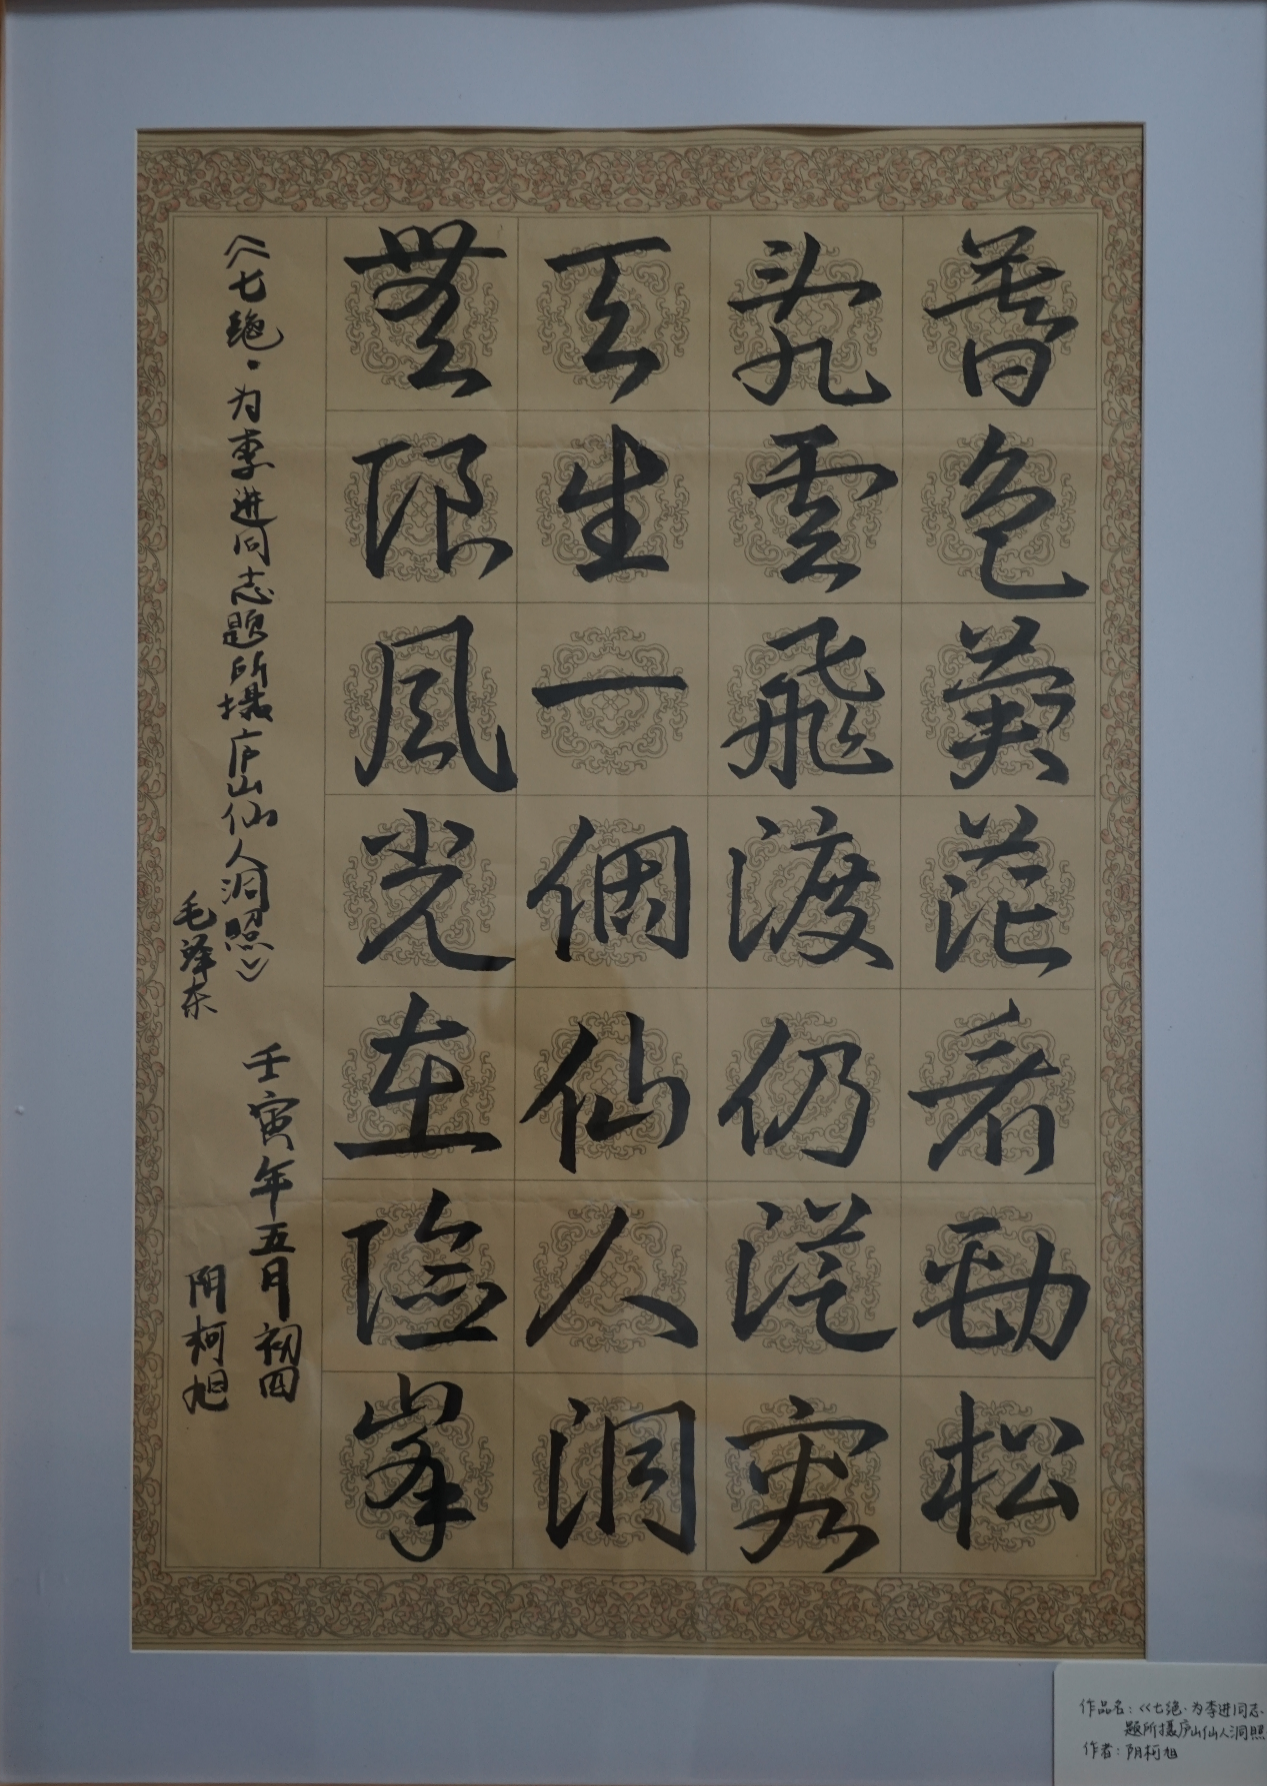 暮色蒼茫看勁松
亂雲飛渡仍從容
天生一個仙人洞
無限風光在險峯
《七绝·为李进同志题所摄庐山仙人洞照》
毛泽东
壬寅年五月初四
阴柯旭
作品名：《七绝·为李进同志
题所摄庐山仙人洞照
作者：阴柯旭